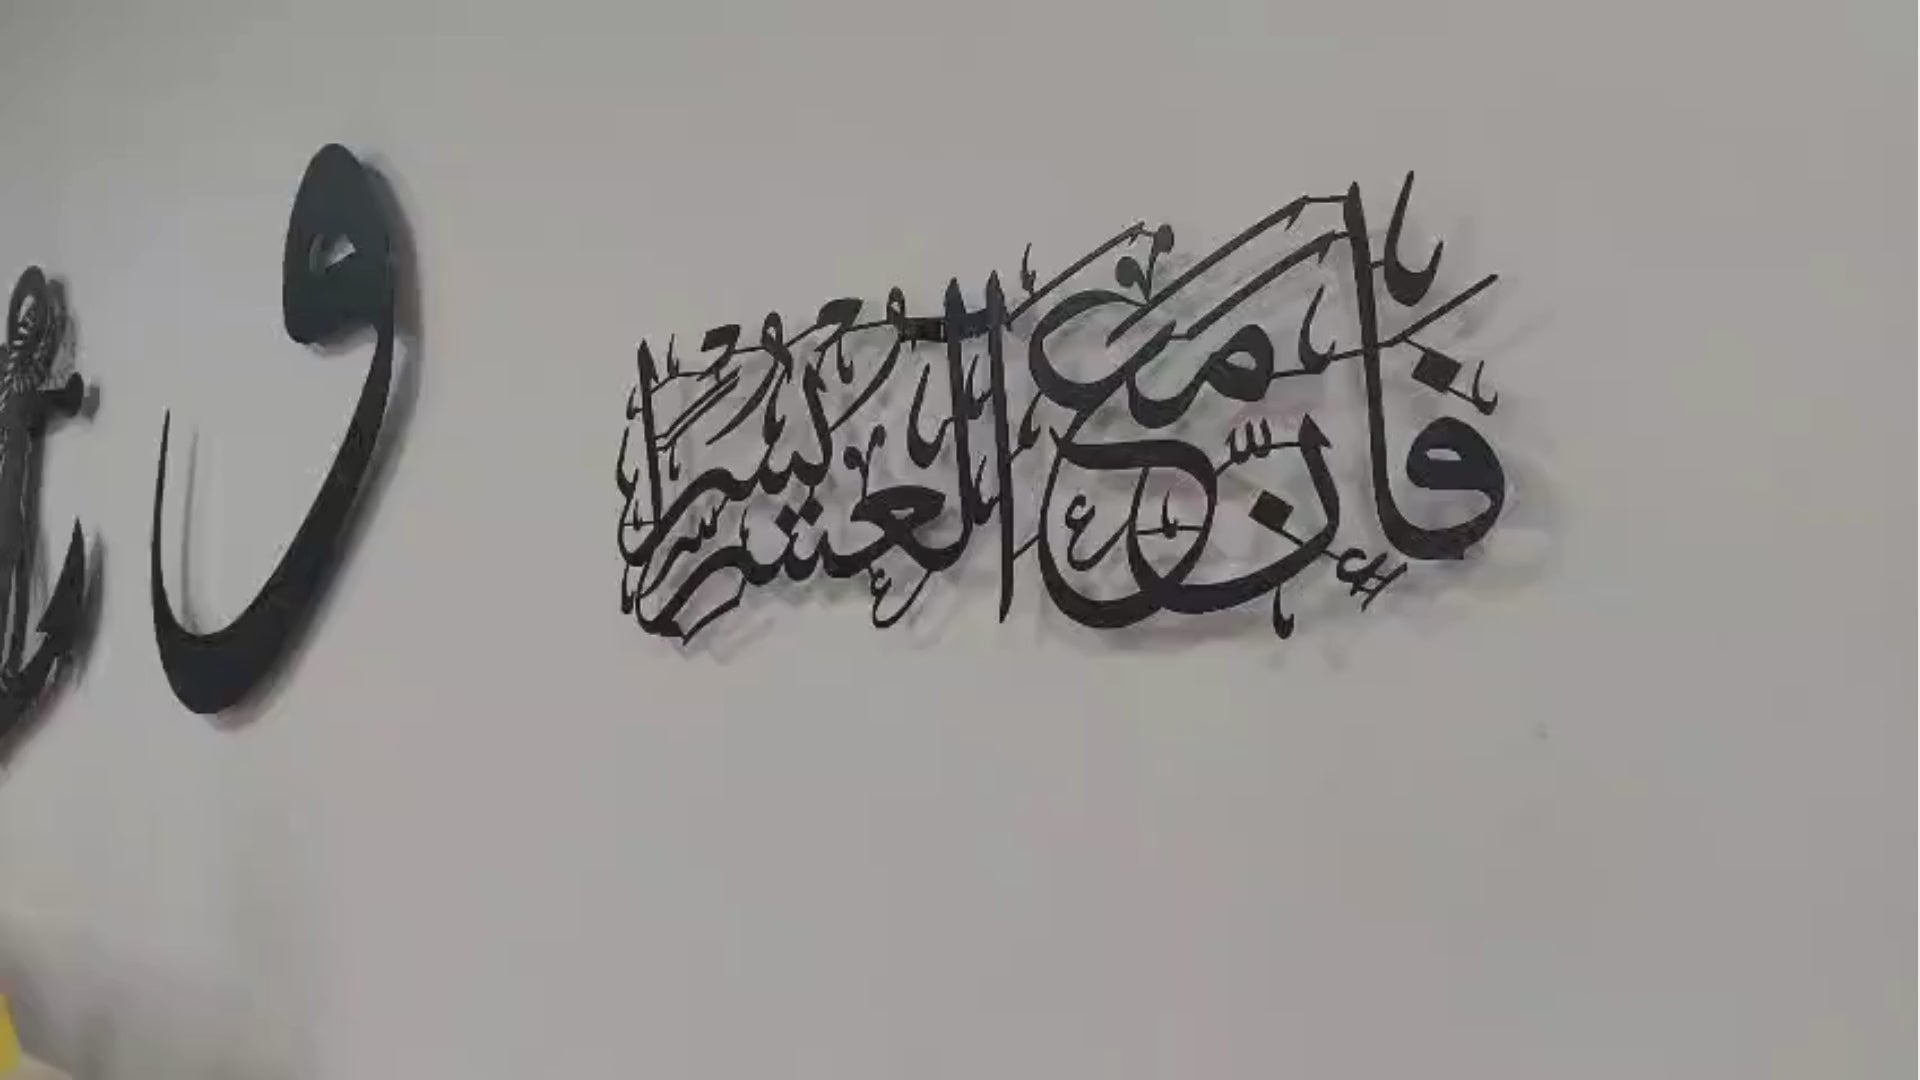 فَإِنَّ مَعَ الْعُسْرِ يُسْرًا
و